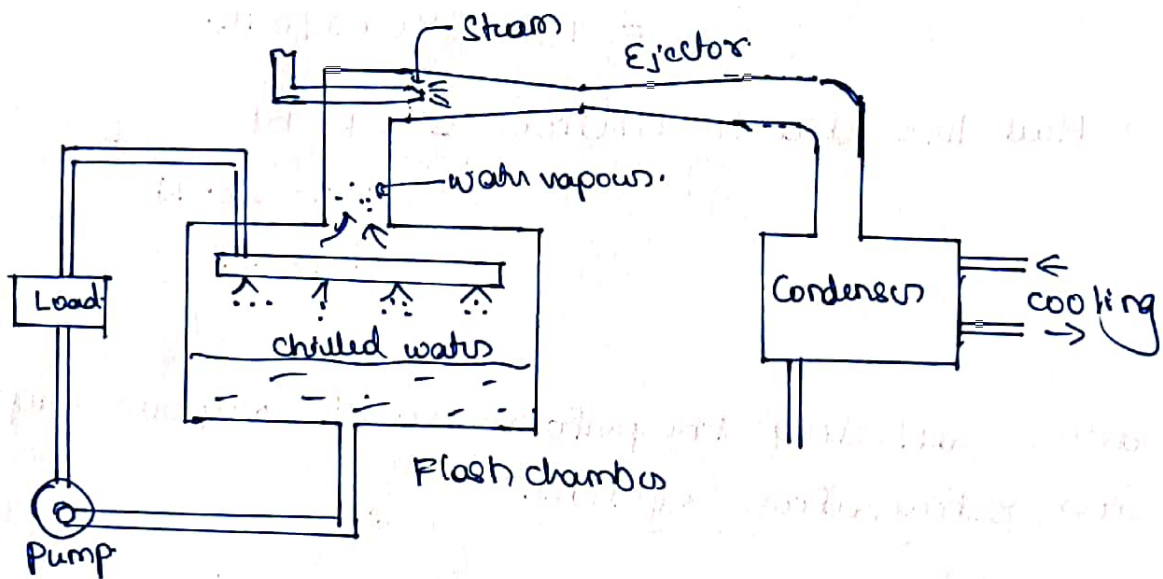 Steam
Ejector
water vapours.
Load
chilled water
Condenser
cooling
Flash chamber
Pump